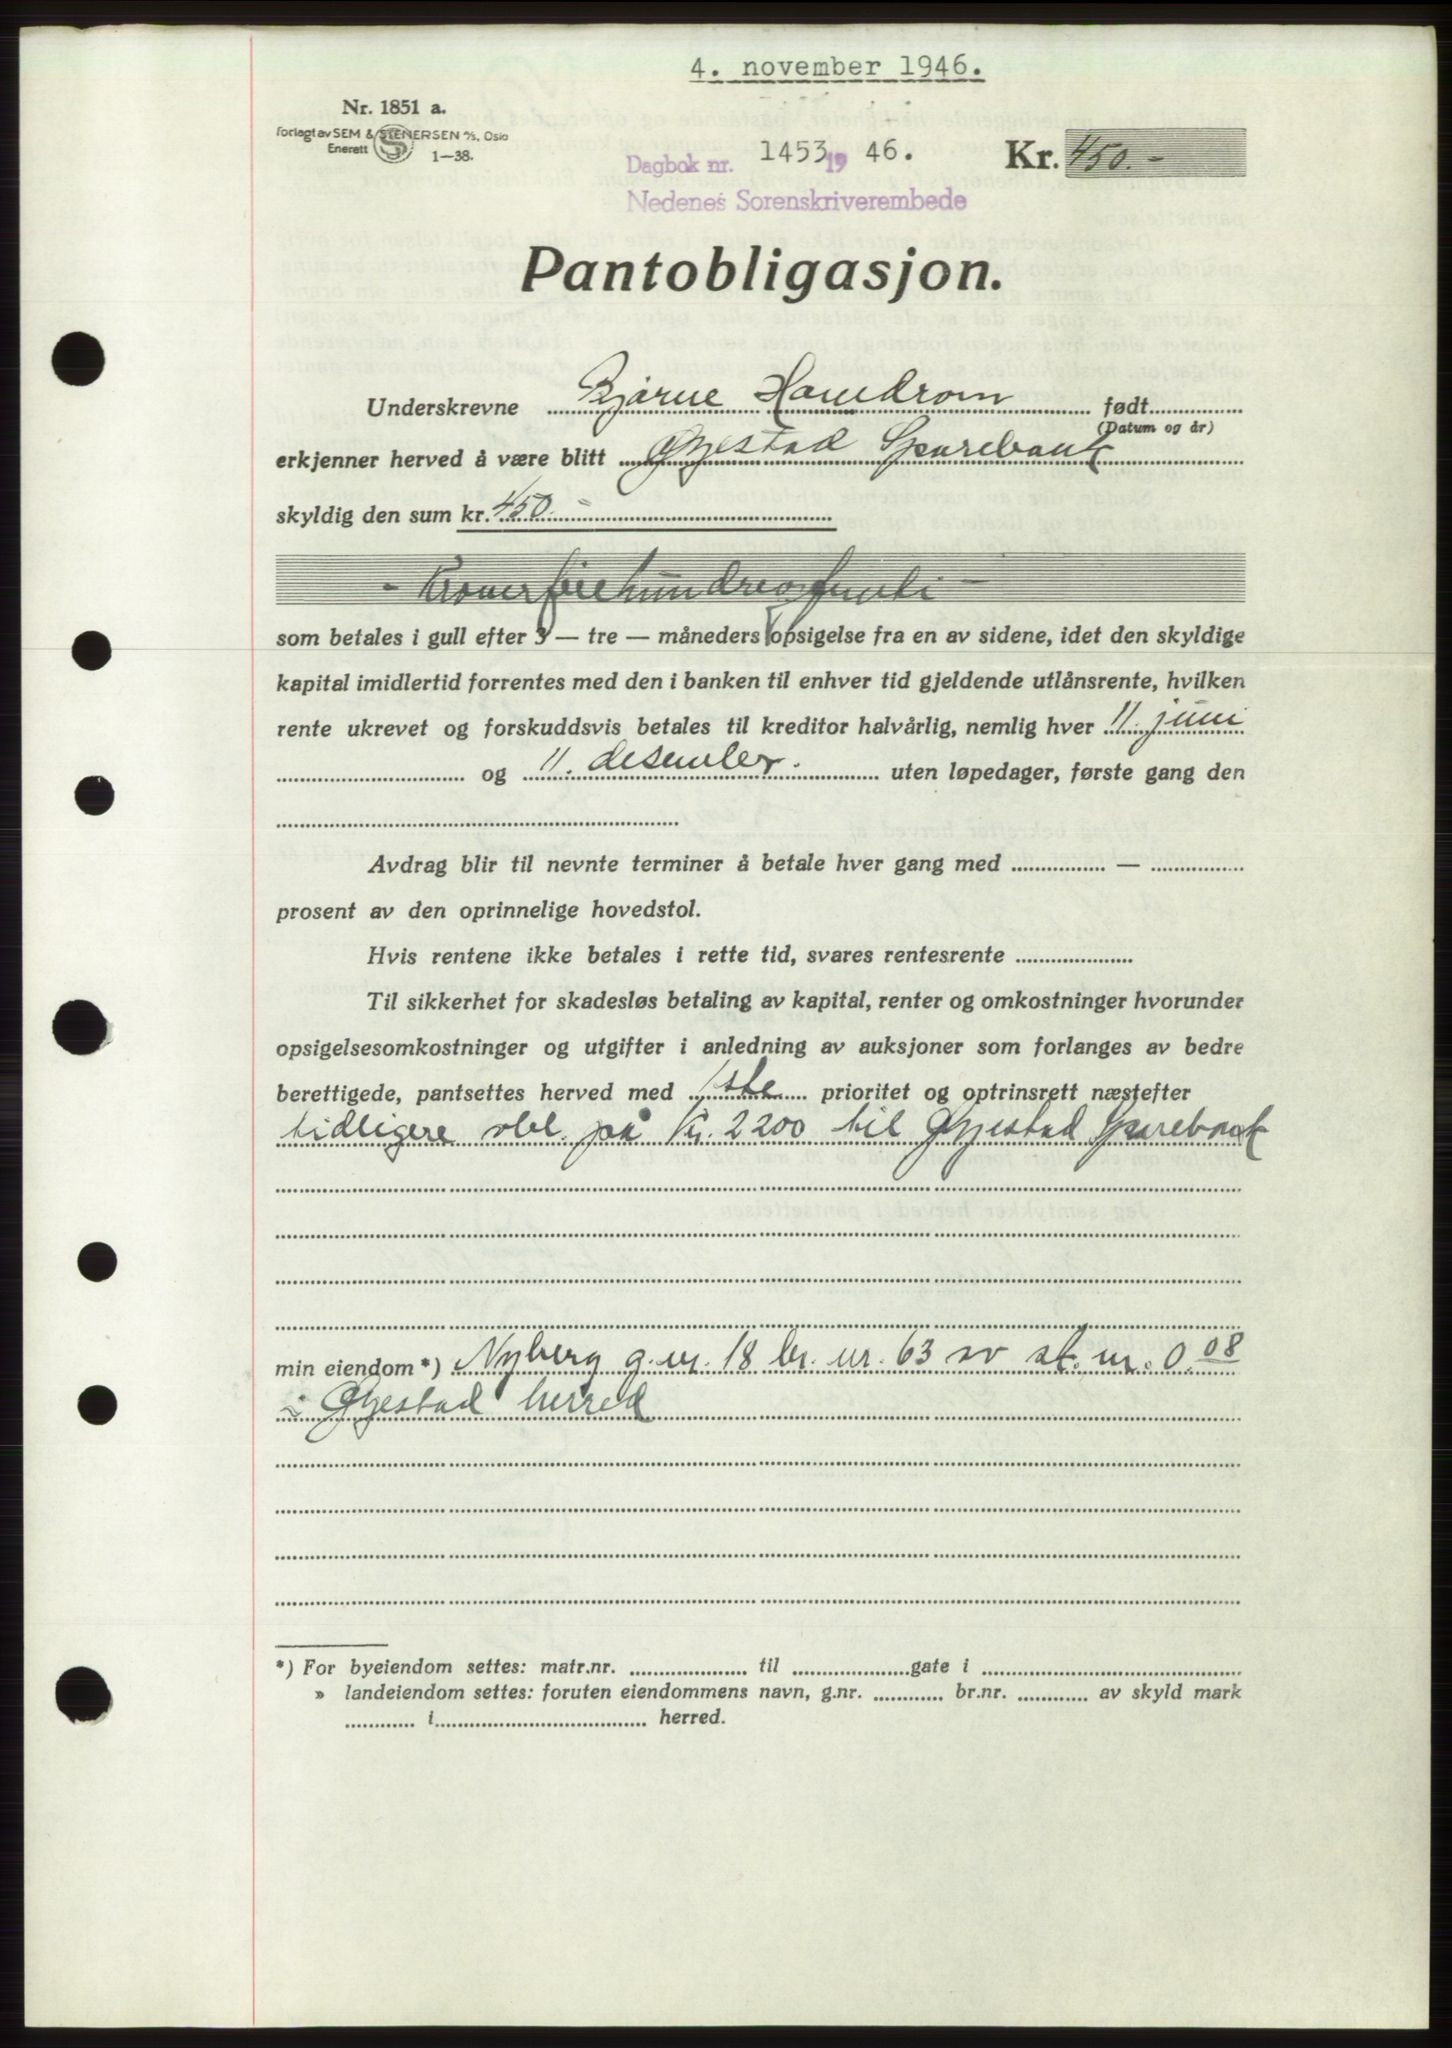 4. november 1946.
Nr. 1851 a.
Forlagt av SEM & STENERSEN A/S, Oslo
Enerett 1—38.
Dagbok nr. 1453 1946.
Kr. 450.-
Nedenes Sorenskriverembede
Pantobligasjon.
Underskrevne Bjarne Hamdrom født
(Datum og år)
erkjenner herved å være blitt Øyestad Sparebank
skyldig den sum kr. 450.-
- Kroner firehundreogfemti -
som betales i gull efter 3 — tre — måneders opsigelse fra en av sidene, idet den skyldige
kapital imidlertid forrentes med den i banken til enhver tid gjeldende utlånsrente, hvilken
rente ukrevet og forskuddsvis betales til kreditor halvårlig, nemlig hver 11. juni
og 11. desember. uten løpedager, første gang den
Avdrag blir til nevnte terminer å betale hver gang med —
prosent av den oprinnelige hovedstol.
Hvis rentene ikke betales i rette tid, svares rentesrente
Til sikkerhet for skadesløs betaling av kapital, renter og omkostninger hvorunder
opsigelsesomkostninger og utgifter i anledning av auksjoner som forlanges av bedre
berettigede, pantsettes herved med 1ste prioritet og optrinsrett næstefter
tidligere obl. på Kr. 2200 til Øyestad Sparebank
min eiendom *) Nyberg g.nr. 18 br. nr. 63 av sk. m. 0.08
i Øyestad herred
*) For byeiendom settes: matr.nr. til gate i
» landeiendom settes: foruten eiendommens navn, g.nr. br.nr. av skyld mark
i herred.